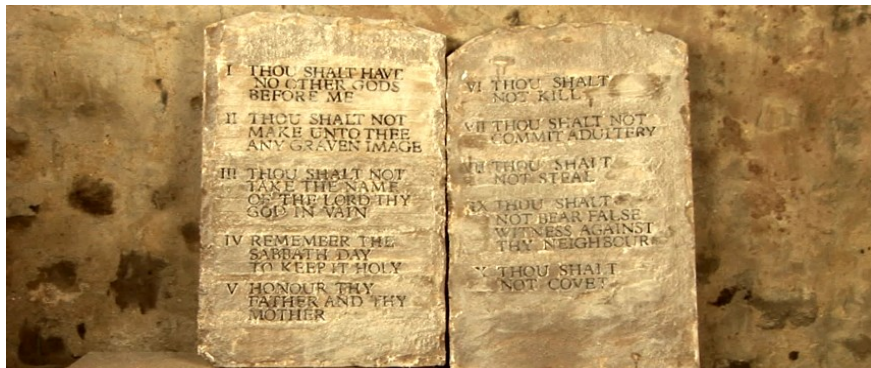 I THOU SHALT HAVE
NO OTHER GODS
BEFORE ME
II THOU SHALT NOT
MAKE UNTO THEE
ANY GRAVEN IMAGE
III THOU SHALT NOT
TAKE THE NAME
OF THE LORD THY
GOD IN VAIN
IV REMEMBER THE
SABBATH DAY
TO KEEP IT HOLY
V HONOUR THY
FATHER AND THY
MOTHER
VI THOU SHALT
NOT KILL
VII THOU SHALT NOT
COMMIT ADULTERY
VIII THOU SHALT
NOT STEAL
IX THOU SHALT
NOT BEAR FALSE
WITNESS AGAINST
THY NEIGHBOUR
X THOU SHALT
NOT COVET